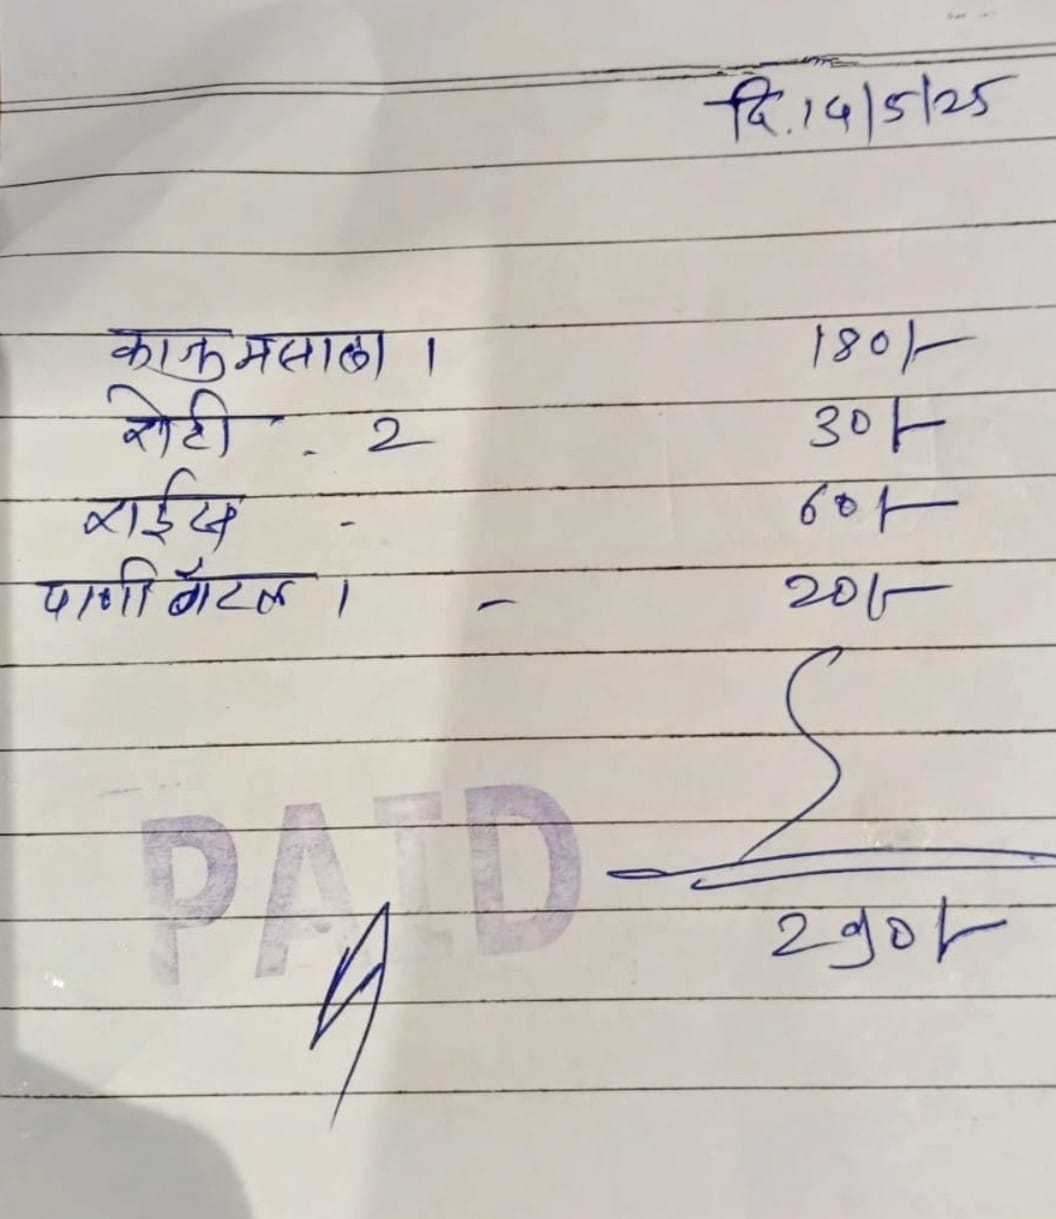 दि. 14/5/25
काजु मसाला 1 180/-
रोटी . 2 30/-
राईस - 60/-
पाणी बॉटल 1 - 20/-
290/-
PAID